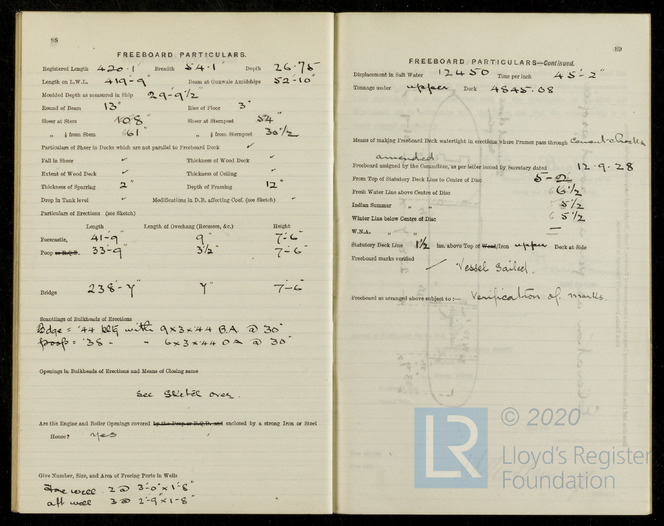 88
FREEBOARD PARTICULARS.
Registered Length 420.1' Breadth 54.1' Depth 26.75
Length on L.W.L. 419'-9" Beam at Gunwale Amidships 52'-10"
Moulded Depth as measured in Ship 29'-9½"
Round of Beam 13" Rise of Floor 3"
Sheer at Stem 108" Sheer at Sternpost 54"
" ⅛ from Stem 61" " ⅛ from Sternpost 30½
Particulars of Sheer in Decks which are not parallel to Freeboard Deck ✓
Fall in Sheer ✓ Thickness of Wood Deck ✓
Extent of Wood Deck ✓ Thickness of Ceiling ✓
Thickness of Sparring 2" Depth of Framing 12"
Drop in Tank level ✓ Modifications in D.B. affecting Coef. (see Sketch) ✓
Particulars of Erections (see Sketch)
Length Length of Overhang (Recesses, &c.) Height
Forecastle, 41'-9" 9" 7'-6"
Poop or R.Q.D. 33'-9" 3½" 7'-6"
Bridge 238'- 7'-6"
Scantlings of Bulkheads of Erections
Bdge = .44 with 9 x 3 x .44 B.A @ 30"
Poop = .38 - " 6 x 3 x .44 O A @ 30"
Openings in Bulkheads of Erections and Means of Closing same
See Sketch over.
Are the Engine and Boiler Openings covered by the Poop or R.Q.D. and enclosed by a strong Iron or Steel
House? Yes
Give Number, Size, and Area of Freeing Ports in Wells
Fore well 2 @ 3'-0" x 1'-8"
aft well 3 @ 2'-9" x 1'-8"
89
FREEBOARD PARTICULARS—Continued.
Displacement in Salt Water 12450 Tons per inch 45'-2"
Tonnage under upper Deck 4845.08
Means of making Freeboard Deck watertight in erections where Frames pass through Cement chocks
amended
Freeboard assigned by the Committee, as per letter issued by Secretary dated 12.9.28
From Top of Statutory Deck Line to Centre of Disc
Fresh Water Line above Centre of Disc 6½
Indian Summer " " 5½
Winter Line below Centre of Disc 5½
W.N.A. " " —
Statutory Deck Line 1½ ins. above Top of Wood/Iron upper Deck at Side
Freeboard marks verified
Vessel Sailed.
Freeboard as arranged above subject to:— Verification of marks.
© 2020
LR
Lloyd's Register
Foundation